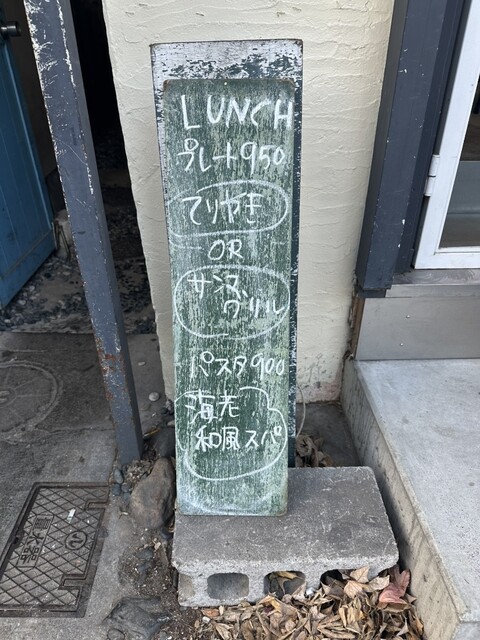 LUNCH
プレート950
てりやき
OR
グリル
パスタ900
海老
和風スパ
量水器